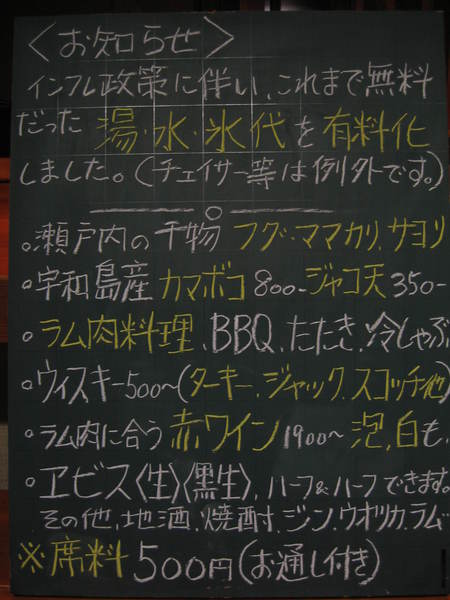 〈お知らせ〉
インフレ政策に伴い、これまで無料
だった 湯・水・氷代を有料化
しました。(チェイサー等は例外です。)
。瀬戸内の干物 フグ・ママカリ、サヨリ
。宇和島産 カマボコ800~ジャコ天350-
。ラム肉料理、BBQ、たたき、冷しゃぶ
。ウィスキー500~(ターキー、ジャック、スコッチ他)
。ラム肉に合う 赤ワイン1900~ 泡、白も、
。ヱビス〈生〉〈黒生〉、ハーフ&ハーフできます。
その他、地酒、焼酎、ジン、ウオッカ、ラム…
※席料500円(お通し付き)